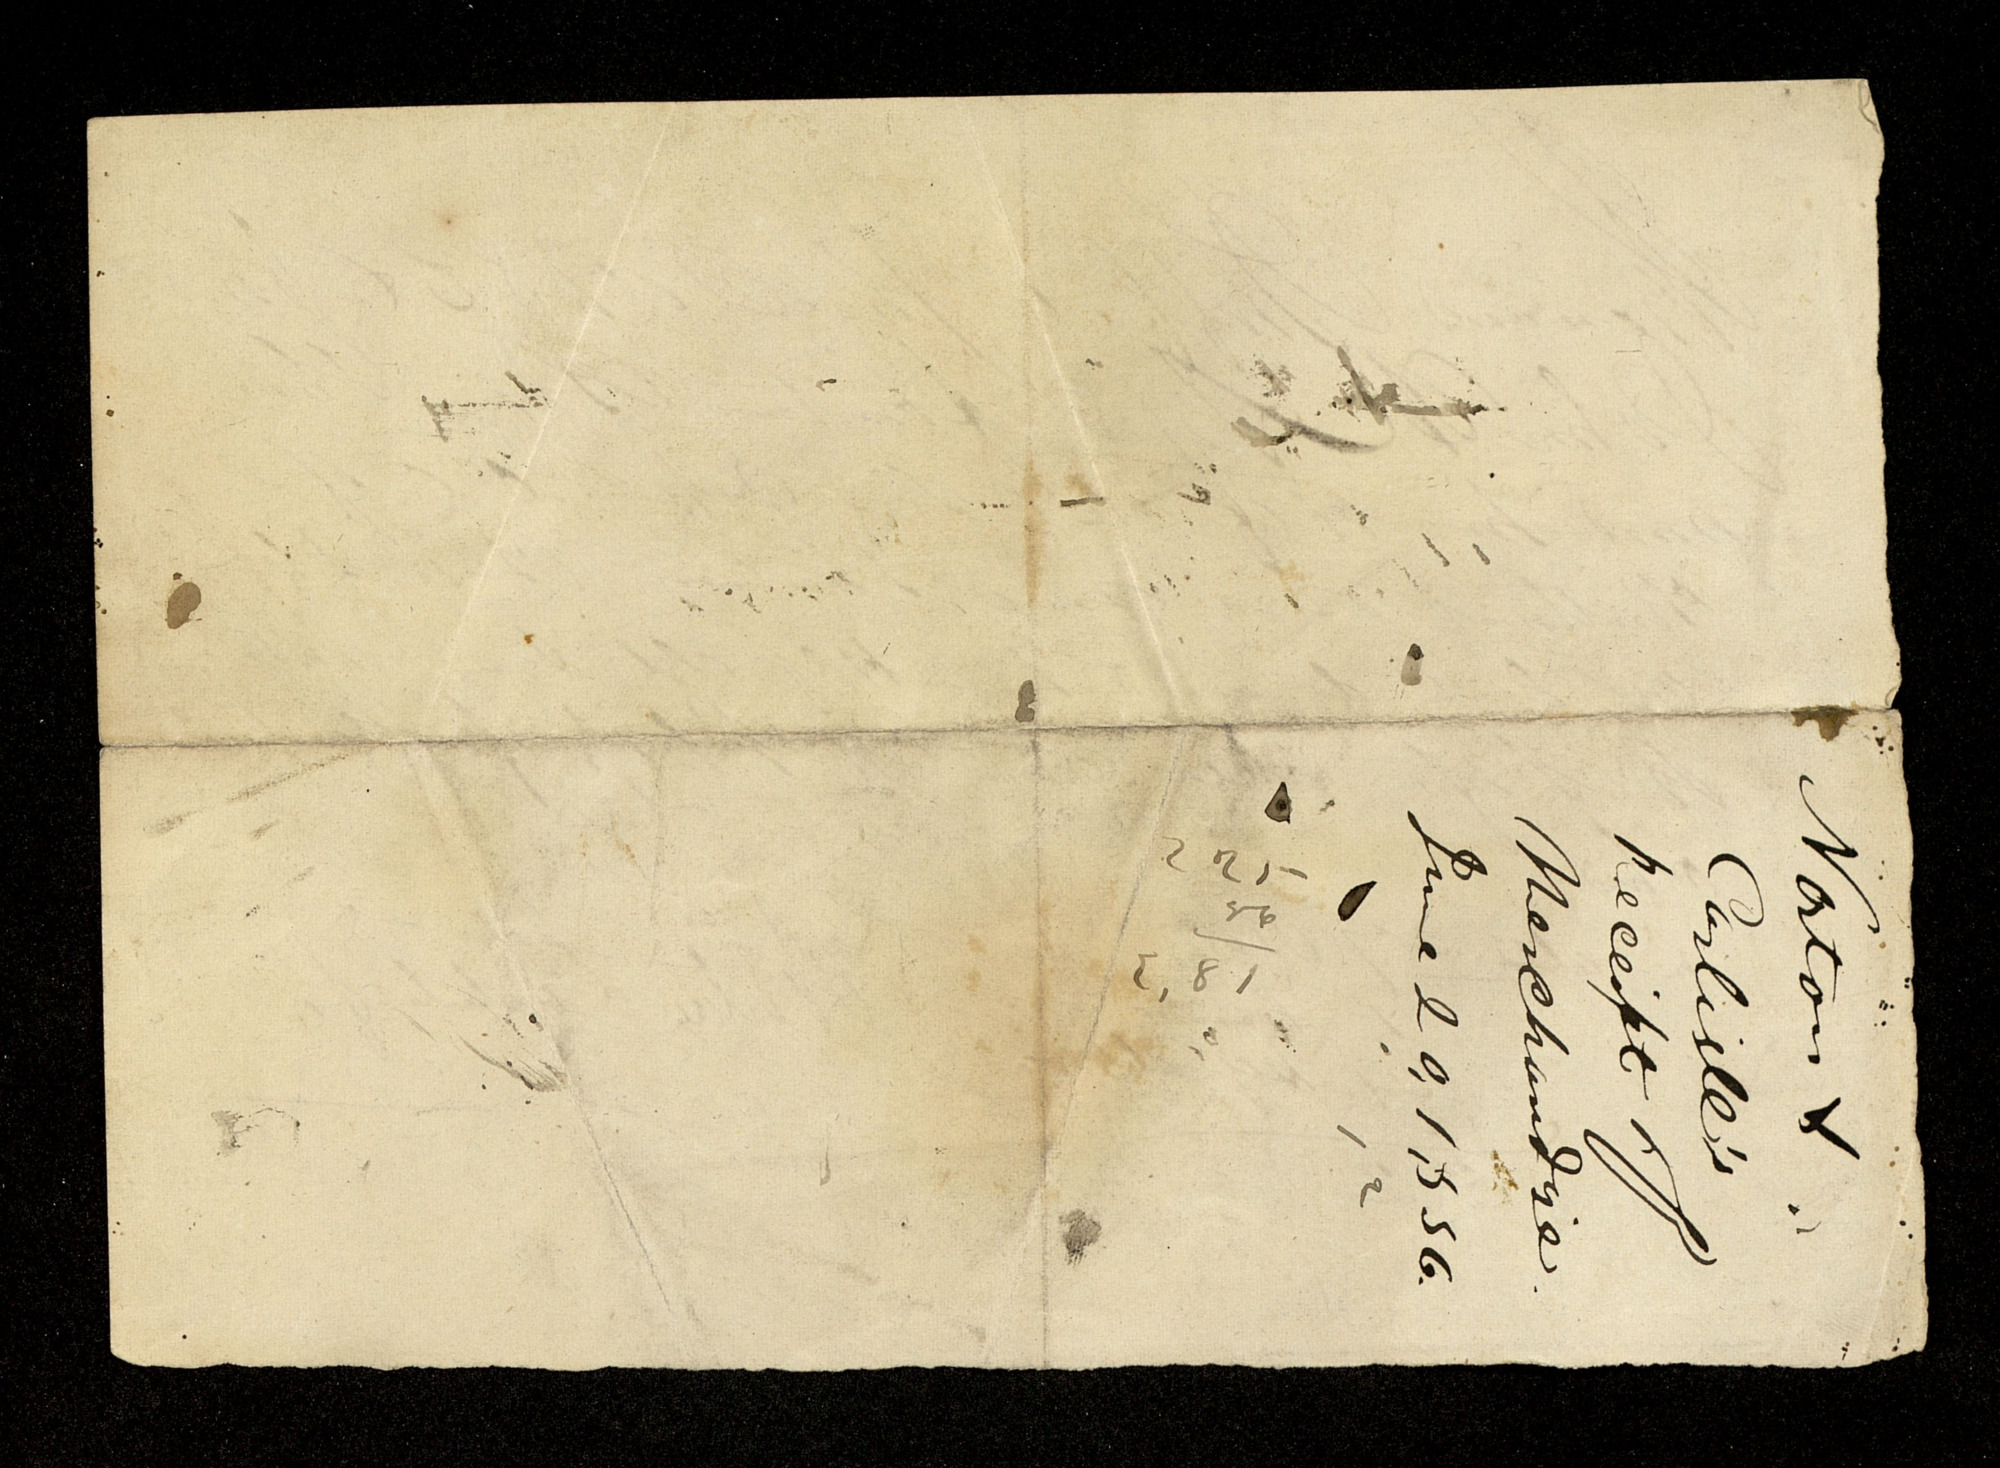 Norton &
Carlisle's
receipt of
Merchandise.
June 29, 1856.
12